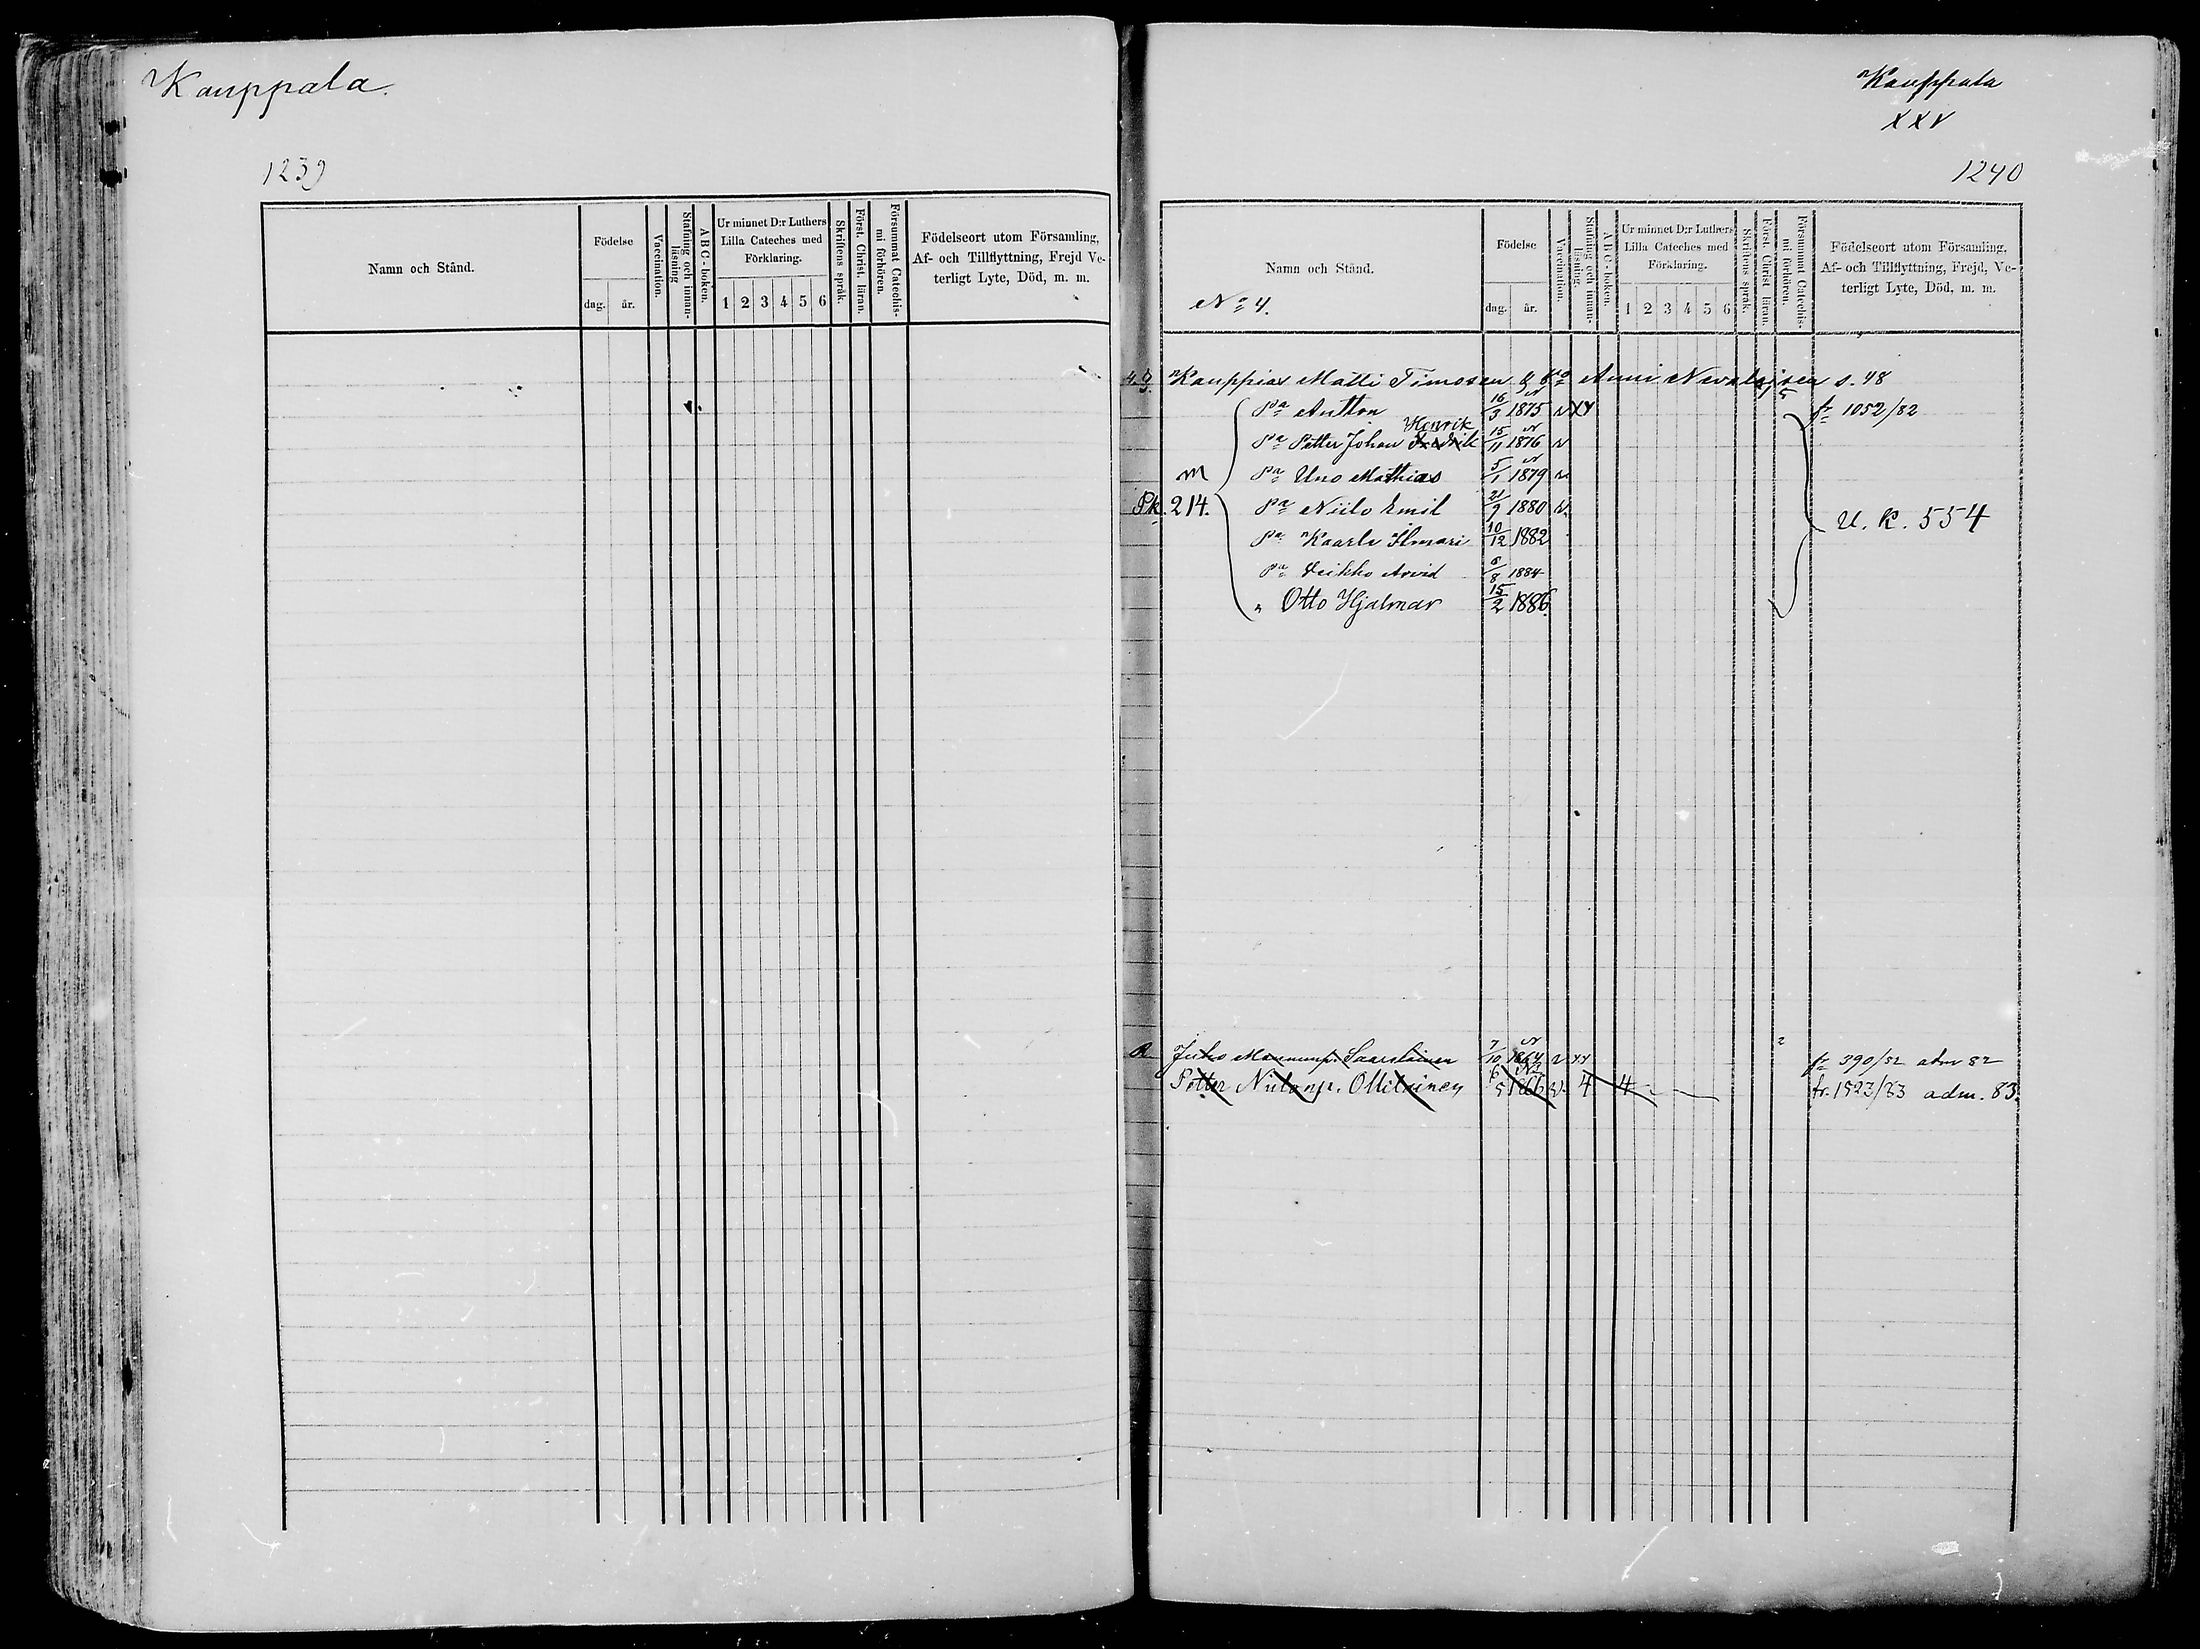 Kauppala.
1239
Namn och Stånd.
Födelse
dag. år.
Vaccination.
Stafning och innan-
läsning
A B C-boken.
Ur minnet D:r Luthers
Lilla Cateches med
Förklaring.
1 2 3 4 5 6
Skriftens språk.
Först. Christ. läran.
Försummat Catechis-
mi förhören.
Födelseort utom Församling,
Af- och Tillflyttning, Frejd Ve-
terligt Lyte, Död, m. m.
Kauppala
XXV
1240
Namn och Stånd.
No 4.
Födelse
dag. år.
Vaccination.
Stafning och innan-
läsning.
A B C-boken.
Ur minnet D:r Luthers
Lilla Cateches med
Förklaring.
1 2 3 4 5 6
Skriftens språk.
Först. Christ läran.
Försummat Catechis-
mi förhören.
Födelseort utom Församling,
Af- och Tillflyttning, Frejd, Ve-
terligt Lyte, Död, m. m.
Kauppias Matti Timosen & Anni Nevalaisen s. 48
Pa Antton 16/3 1875 v XY fr 1052/82
Henrik
Pa Petter Johan Fredrik 15/11 1876 v
m Pa Uno Mathias 5/1 1879 v
Pk. 214. Pa Niilo Emil 21/9 1880 v. U. K. 554
Pa Kaarlo Ilmari 10/12 1882
Pa Veikko Arvid 6/8 1884
" Otto Hjalmar 15/2 1886.
R Juho Mananp. Saarelainen 7/10 1864 v xy fr 390/82 adm 82
Petter Niilonp. Ollilainen 6/5 1866 v. 4 4 fr. 1523/83 adm. 83.